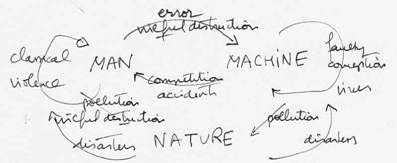 error
wilful destruction
classical
violence
MAN
MACHINE
faulty
conception
virus
competition
accidents
pollution
wilful destruction
pollution
disasters
NATURE
disasters